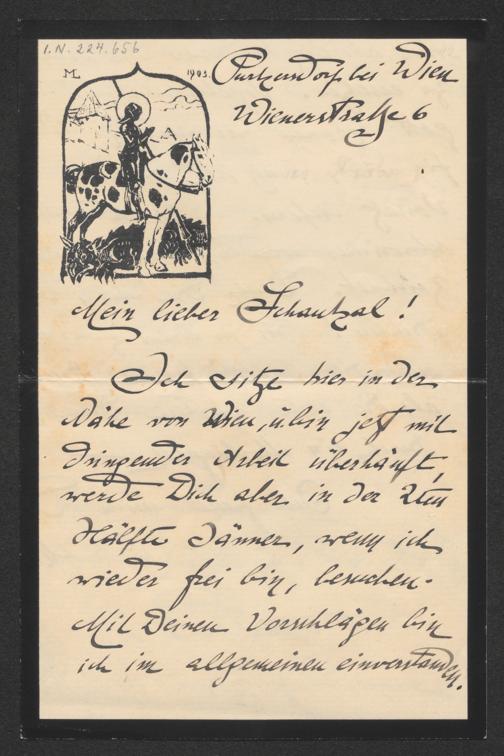 I.N. 224.656
ML 1903.
Purkersdorf bei Wien
Wienerstraße 6
Mein lieber Schaukal!
Ich sitze hier in der
Nähe von Wien, u bin jetzt mit
dringender Arbeit überhäuft,
werde Dich aber in der 2ten
Hälfte Jänner, wenn ich
wieder frei bin, besuchen.
Mit Deinen Vorschlägen bin
ich im allgemeinen einverstanden.